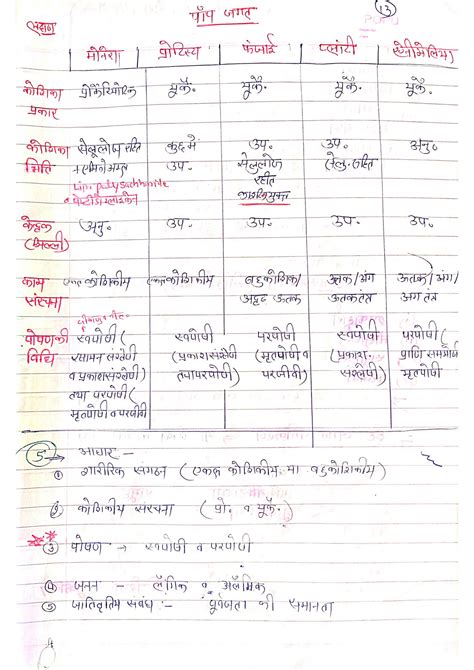 13
पाँच जगत
लक्षण
मोनेरा प्रोटिस्टा फंजाई प्लांटी एनीमेलिया
कोशिका प्रोकैरियोटिक यूकै. यूकै. यूकै. यूकै.
प्रकार
कोशिका सेलुलोज रहित कुछ में उप. उप. अनु.
भित्ति + एमिनो अम्ल उप. सेलुलोज सेलु. सहित
Lipopolysaccharide रहित
काइटिनयुक्त
केन्द्रक अनु. उप. उप. उप. उप.
(झिल्ली)
काय एककोशिकीय एककोशिकीय बहुकोशिक/ ऊतक/अंग ऊतक/अंग/
संरचना अदृढ ऊतक ऊतक तंत्र अंग तंत्र
पोषण की स्वपोषी ( स्वपोषी परपोषी स्वपोषी परपोषी
विधि रसायन संश्लेषी (प्रकाशसंश्लेषी (मृतपोषी व (प्रकाश. प्राणि समभोजी
व प्रकाशसंश्लेषी) तथा परपोषी) परजीवी) संश्लेषी) मृतपोषी
तथा परपोषी (
मृतपोषी व परजीवी
5 → आधार -
① शारीरिक संगठन ( एकल कोशिकीय या बहुकोशिकीय )
② कोशिकीय संरचना ( प्रो. व यूकै. )
③ पोषण → स्वपोषी व परपोषी
④ जनन - लैंगिक व अलैंगिक
⑤ जातिवृत्तिय संबंध :- पूर्वजता की समानता